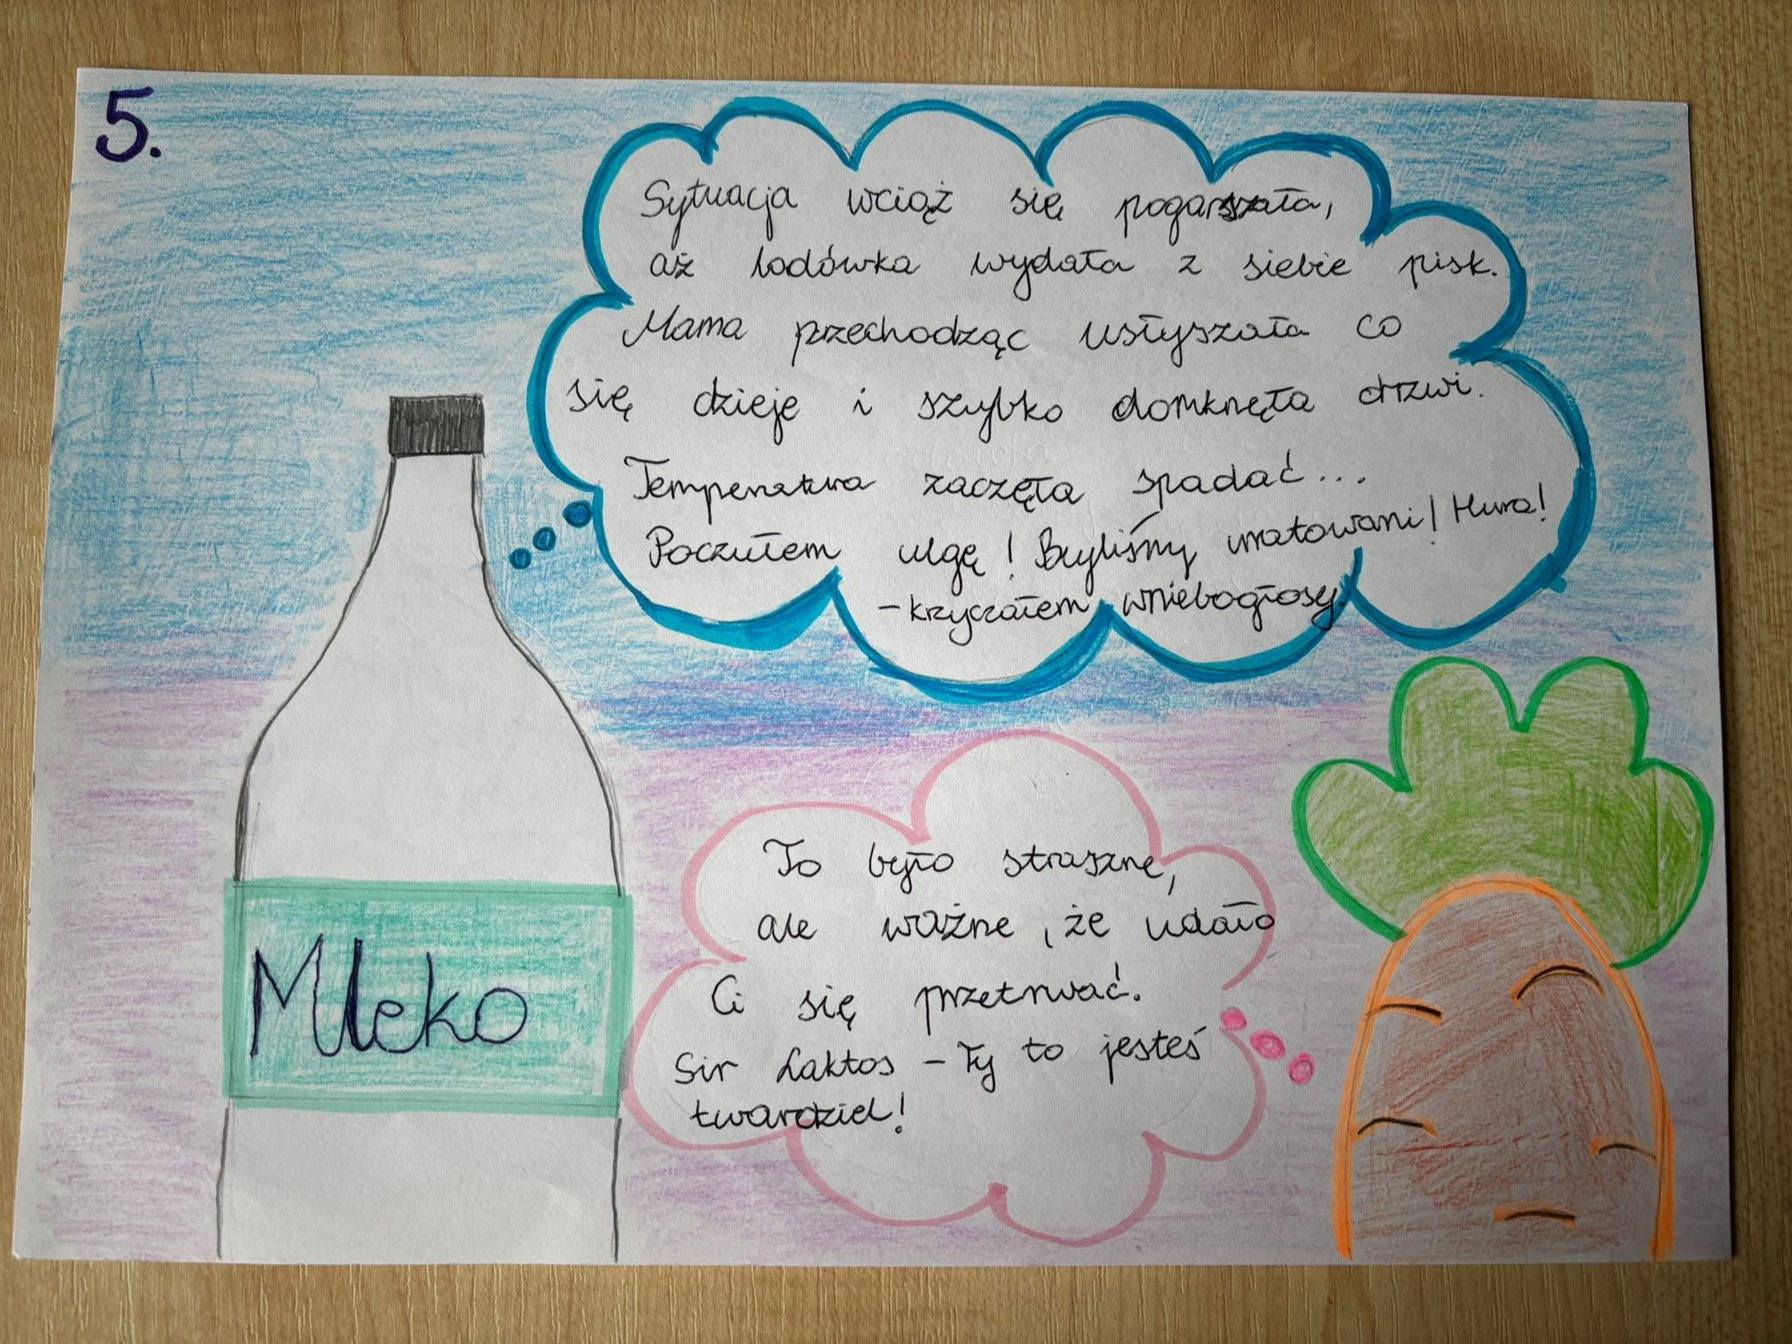 5.
Sytuacja wciąż się pogarszała,
aż lodówka wydała z siebie pisk.
Mama przechodząc usłyszała co
się dzieje i szybko domknęła drzwi.
Temperatura zaczęła spadać...
Poczułem ulgę! Byliśmy uratowani! Hura!
- krzyczałem wniebogłosy.
To było straszne,
ale ważne, że udało
Ci się przetrwać.
Sir Laktos - Ty to jesteś
twardziel!
Mleko